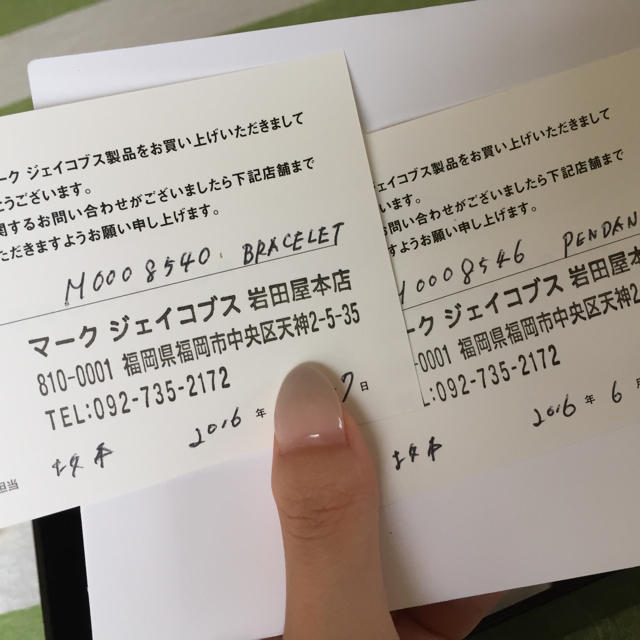 ーク ジェイコブス製品をお買い上げいただきまして
とうございます。
関するお問い合わせがございましたら下記店舗まで
ただきますようお願い申し上げます。
M0008540 BRACELET
マーク ジェイコブス 岩田屋本店
810-0001 福岡県福岡市中央区天神2-5-35
TEL:092-735-2172
2016年 7日
ジェイコブス製品をお買い上げいただきまして
います。
お問い合わせがございましたら下記店舗まで
すようお願い申し上げます。
0008546 PENDAN
ーク ジェイコブス 岩田屋本
-0001 福岡県福岡市中央区天神2
L:092-735-2172
2016年 6月